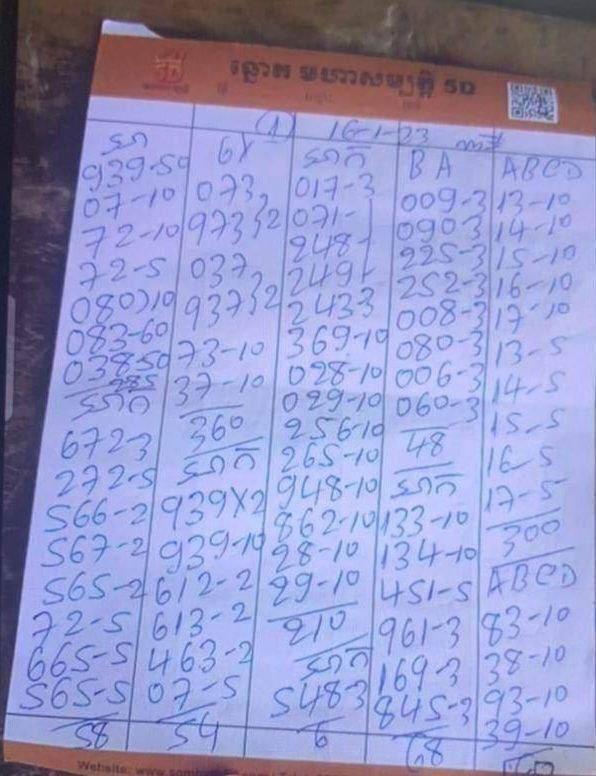 ឆ្នោត មហាសម្បត្តិ 5D
(1) 16-1-23
939-50
07-10
72-10
72-5
080)10
083-60
038-50
285
672-3
272-5
566-2
567-2
565-2
72-5
665-5
565-5
58
6X
073
973}2
037
937}2
73-10
37-10
360
939X2
939-10
612-2
613-2
463-2
07-5
54
017-3
071-
248-
249-
243-3
369-10
028-10
029-10
256-10
265-10
948-10
862-10
28-10
29-10
210
548-3
6
B A
009-3
090-3
225-3
252-3
008-3
080-3
006-3
060-3
48
133-10
134-10
451-5
961-3
169-3
845-3
68
ABCD
13-10
14-10
15-10
16-10
17-10
13-5
14-5
15-5
16-5
17-5
300
ABCD
83-10
38-10
93-10
39-10
Website: